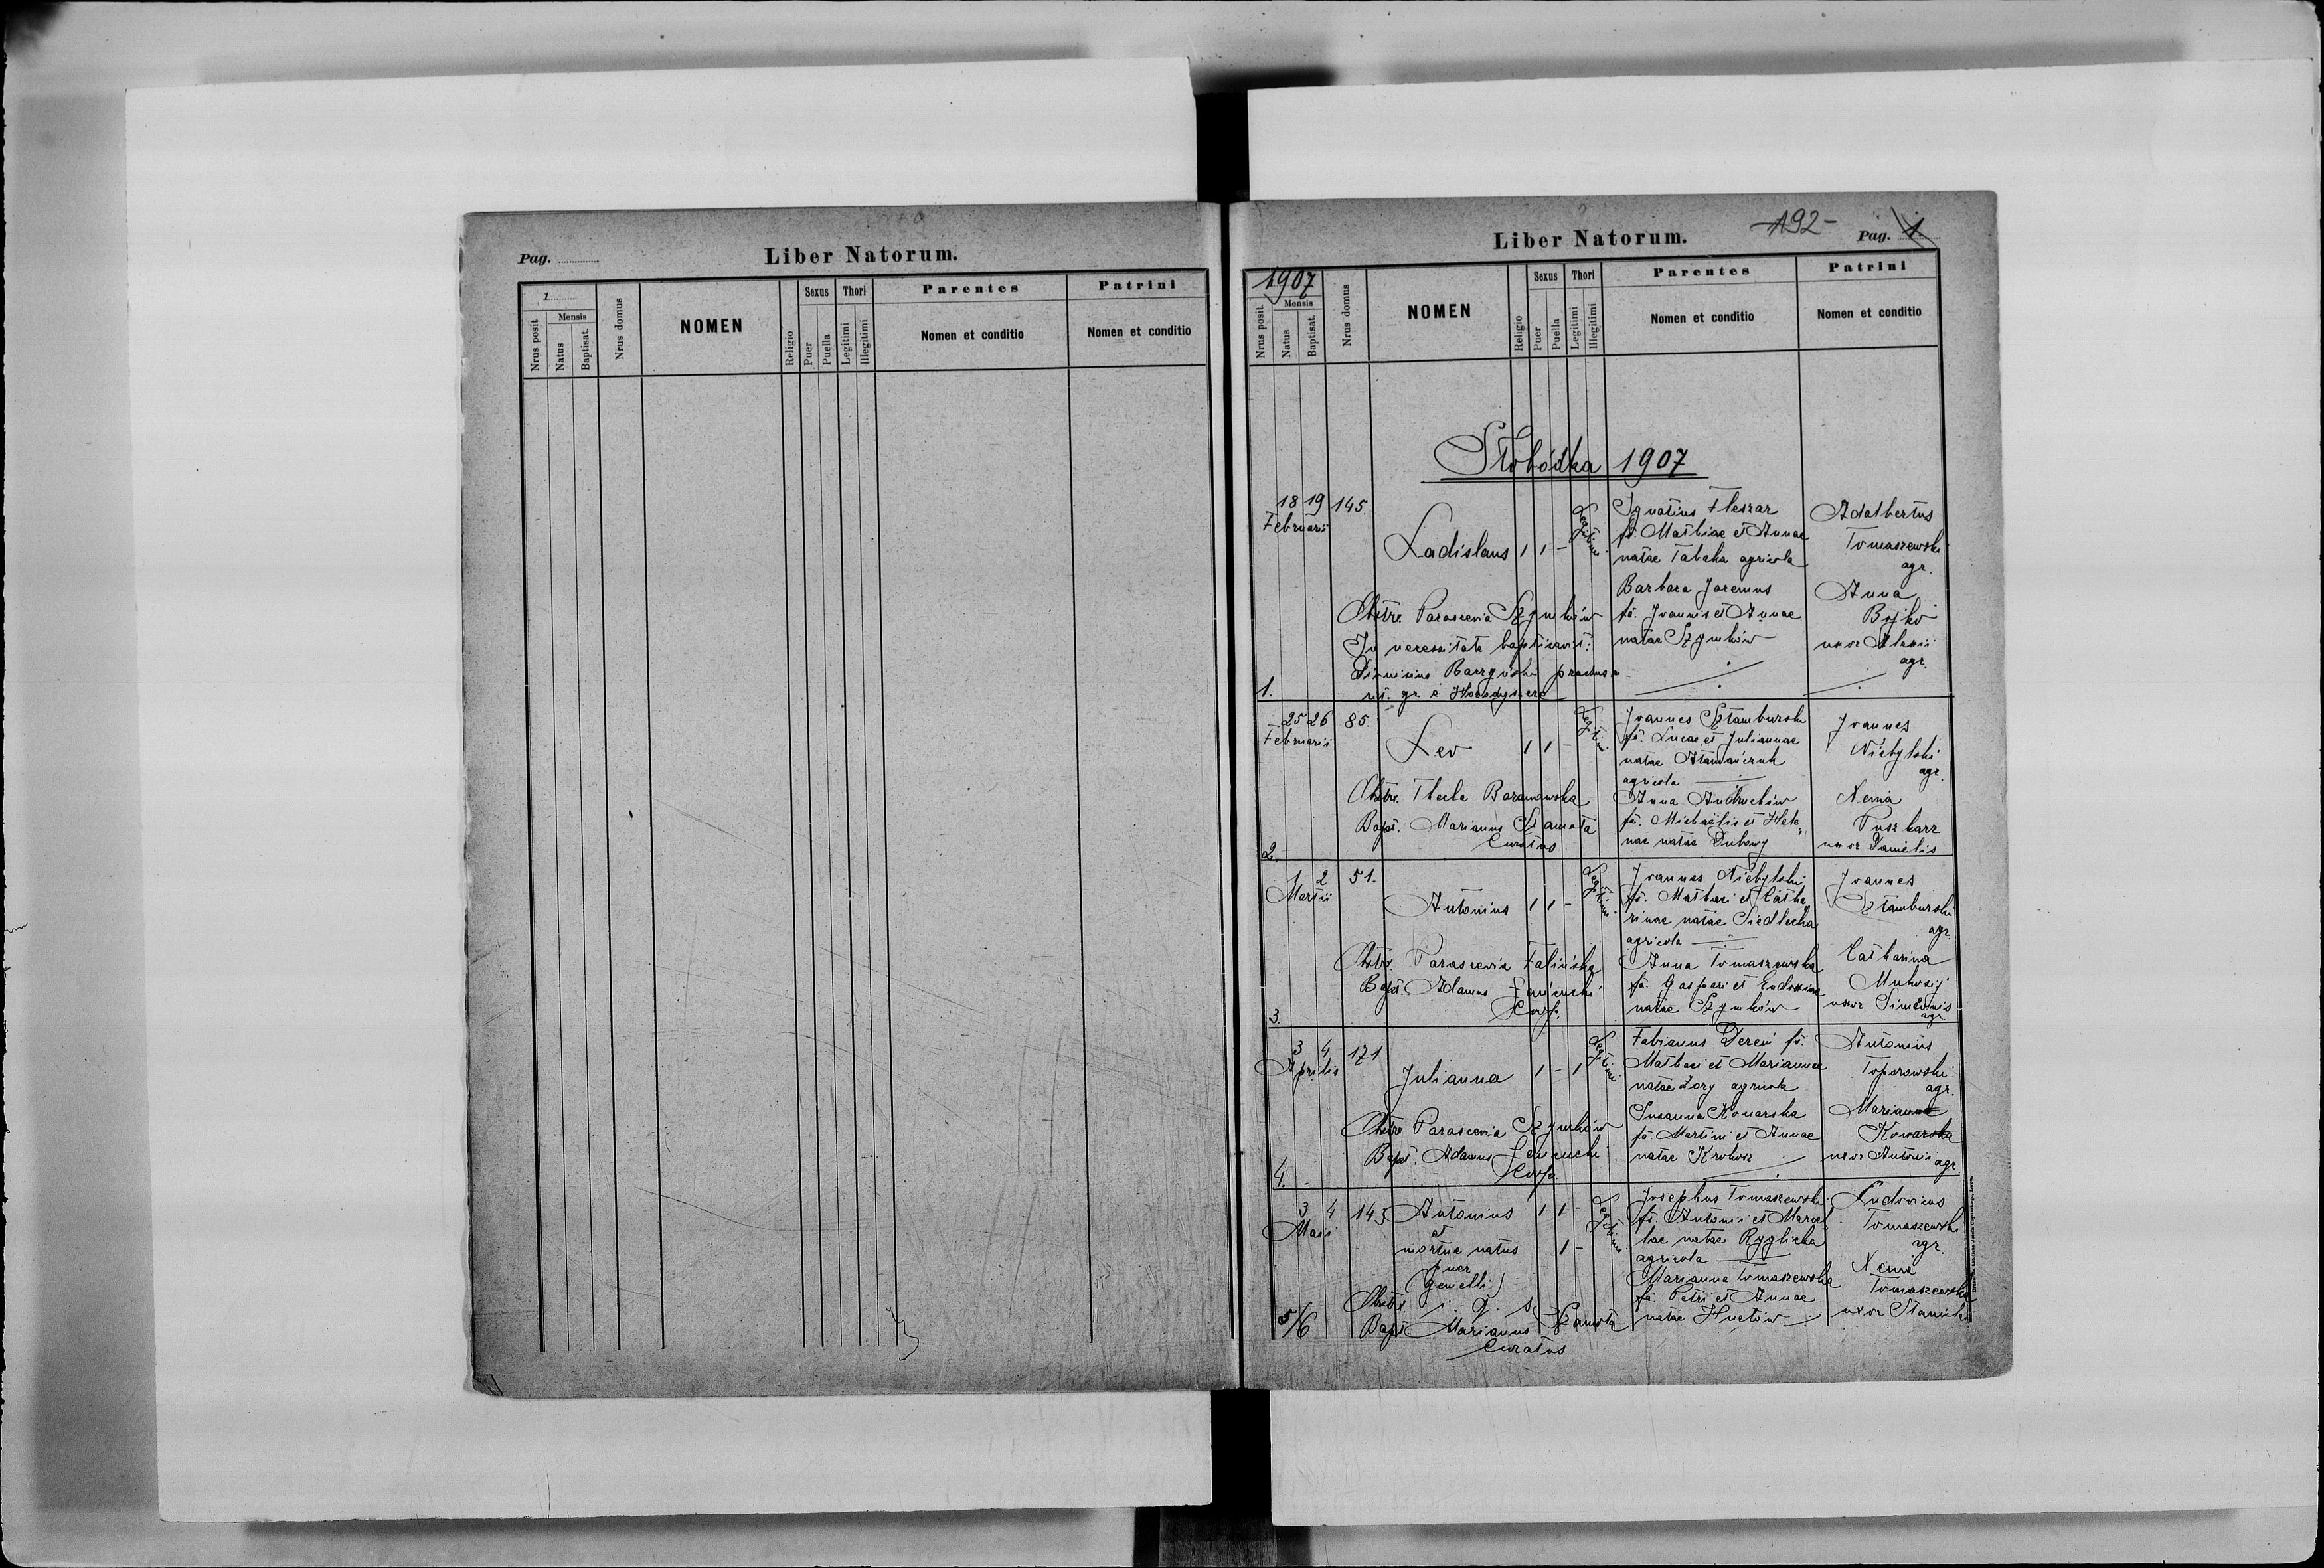 Pag.
Liber Natorum.
1
Nrus posit.
Mensis
Natus
Baptisat.
Nrus domus
NOMEN
Religio
Sexus
Puer
Puella
Thori
Legitimi
Illegitimi
Parentes
Nomen et conditio
Patrini
Nomen et conditio
Liber Natorum.
-192-
Pag. 1.
1907
Nrus posit.
Mensis
Natus
Baptisat.
Nrus domus
NOMEN
Religio
Sexus
Puer
Puella
Thori
Legitimi
Illegitimi
Parentes
Nomen et conditio
Patrini
Nomen et conditio
Słobódka 1907
1.
18 19 145.
Februarii
Ladislaus 1 1 -
Legitimi
Obstre. Parascevia Szymków
In necessitate baptisavit:
rit. gr. e
Ignatius Fleszar
fs. Mathiae et Annae
natae Tabaka agricola
Barbara Jaremus
fa. Joannis et Annae
natae Szymków
Adalbertus
Tomaszewski
agr.
Anna
Bojko
uxor
agr.
2.
25 26 85.
Februarii
Leo 1 1 -
Legitimi
Obstre. Thecla Baranowska
Bapt. Marianus Szamota
Curatus
Joannes Sztamburski
fs. Lucae et Juliannae
natae
agricola
Anna Andruchów
fa. Michaëlis et Hele
nae natae Dubowy
Joannes
Niebylski
agr.
Xenia
Puszkarz
uxor Danielis
3.
1 2 51.
Martii
Antonius 1 1 -
Legitimi
Obstre. Parascevia Falińska
Bapt. Adamus Łańcucki
Coop.
Joannes Niebylski
fs. Mathaei et Catha
rinae natae Siedlecka
agricola
Anna Tomaszewska
fa. Gaspari et Eudoxiae
natae Szymków
Joannes
Sztamburski
agr.
Catharina
uxor Simeonis
agr.
4.
3 4 171
Aprilis
Julianna 1 - 1
Legitimi
Obstre Parascevia Szymków
Bapt. Adamus Łańcucki
Coop.
Fabianus Dereń fs.
Mathaei et Mariannae
natae Zory agricola
Susanna Konarska
fa. Martini et Annae
natae Krokosz
Antonius
Toporowski
agr.
Marianna
Konarska
uxor Antonii
agr.
5/6
3 4 143
Maii
Antonius 1 1 -
et
mortue natus 1 -
puer
(gemelli)
Legitimi
Obstre. i. q. s.
Bapt. Marianus Szamota
Curatus
Josephus Tomaszewski
fs. Antonii et Marcel
lae natae Ryglicka
agricola
Marianna Tomaszewska
fa. Petri et Annae
natae Hnatów
Ludovicus
Tomaszewski
agr.
Xenia
Tomaszewska
uxor Stanislai